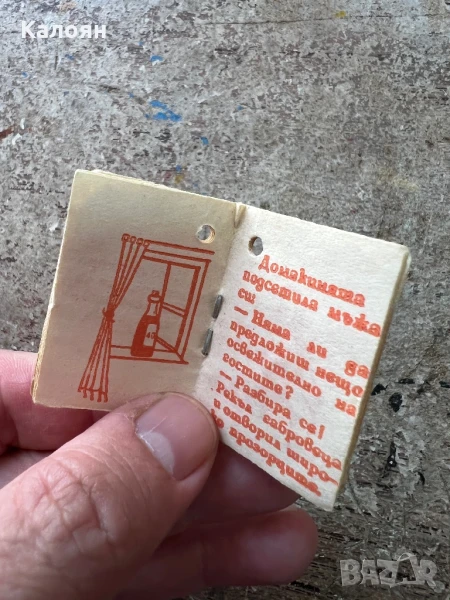 Калоян
Домакинята
подсетила мъжа
си:
— Няма ли да
предложиш нещо
освежително на
гостите?
— Разбира се!
Рекъл габровеца
и отворил широ-
ко прозорците.
BAZAR